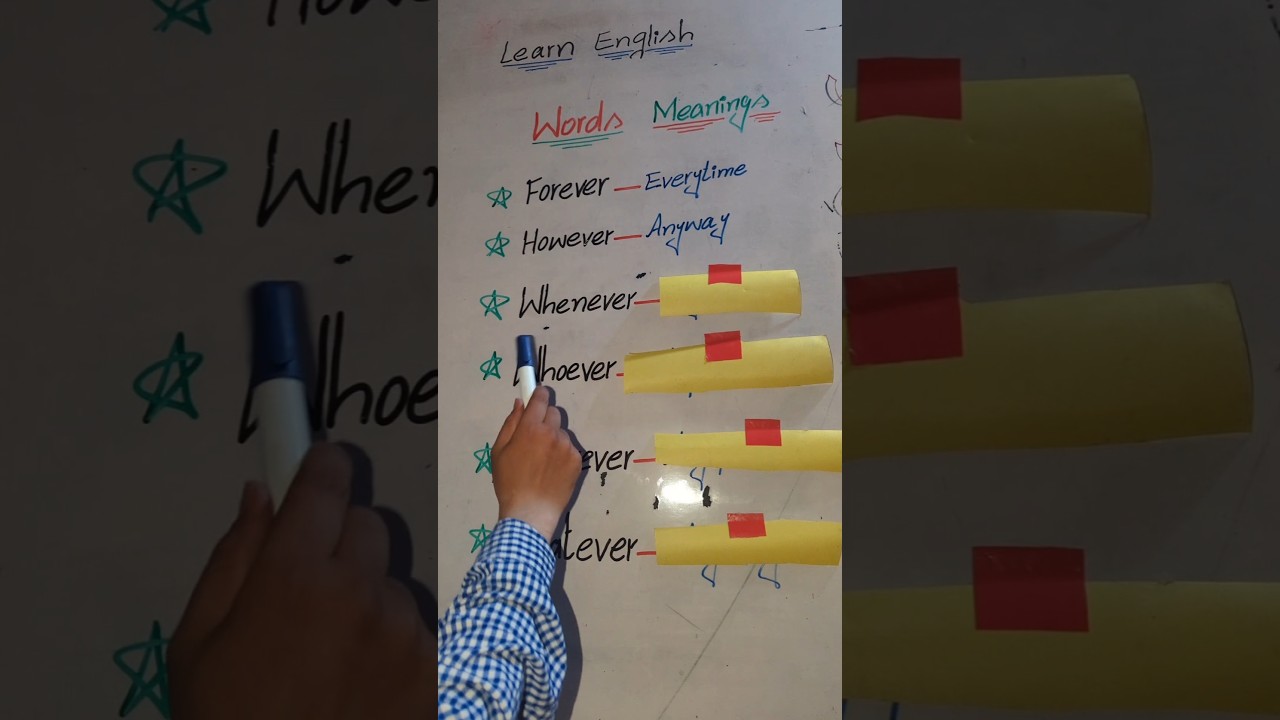 Learn English
Words Meanings
Forever — Everytime
However — Anyway
Whenever —
Whoever —
ever —
tever —